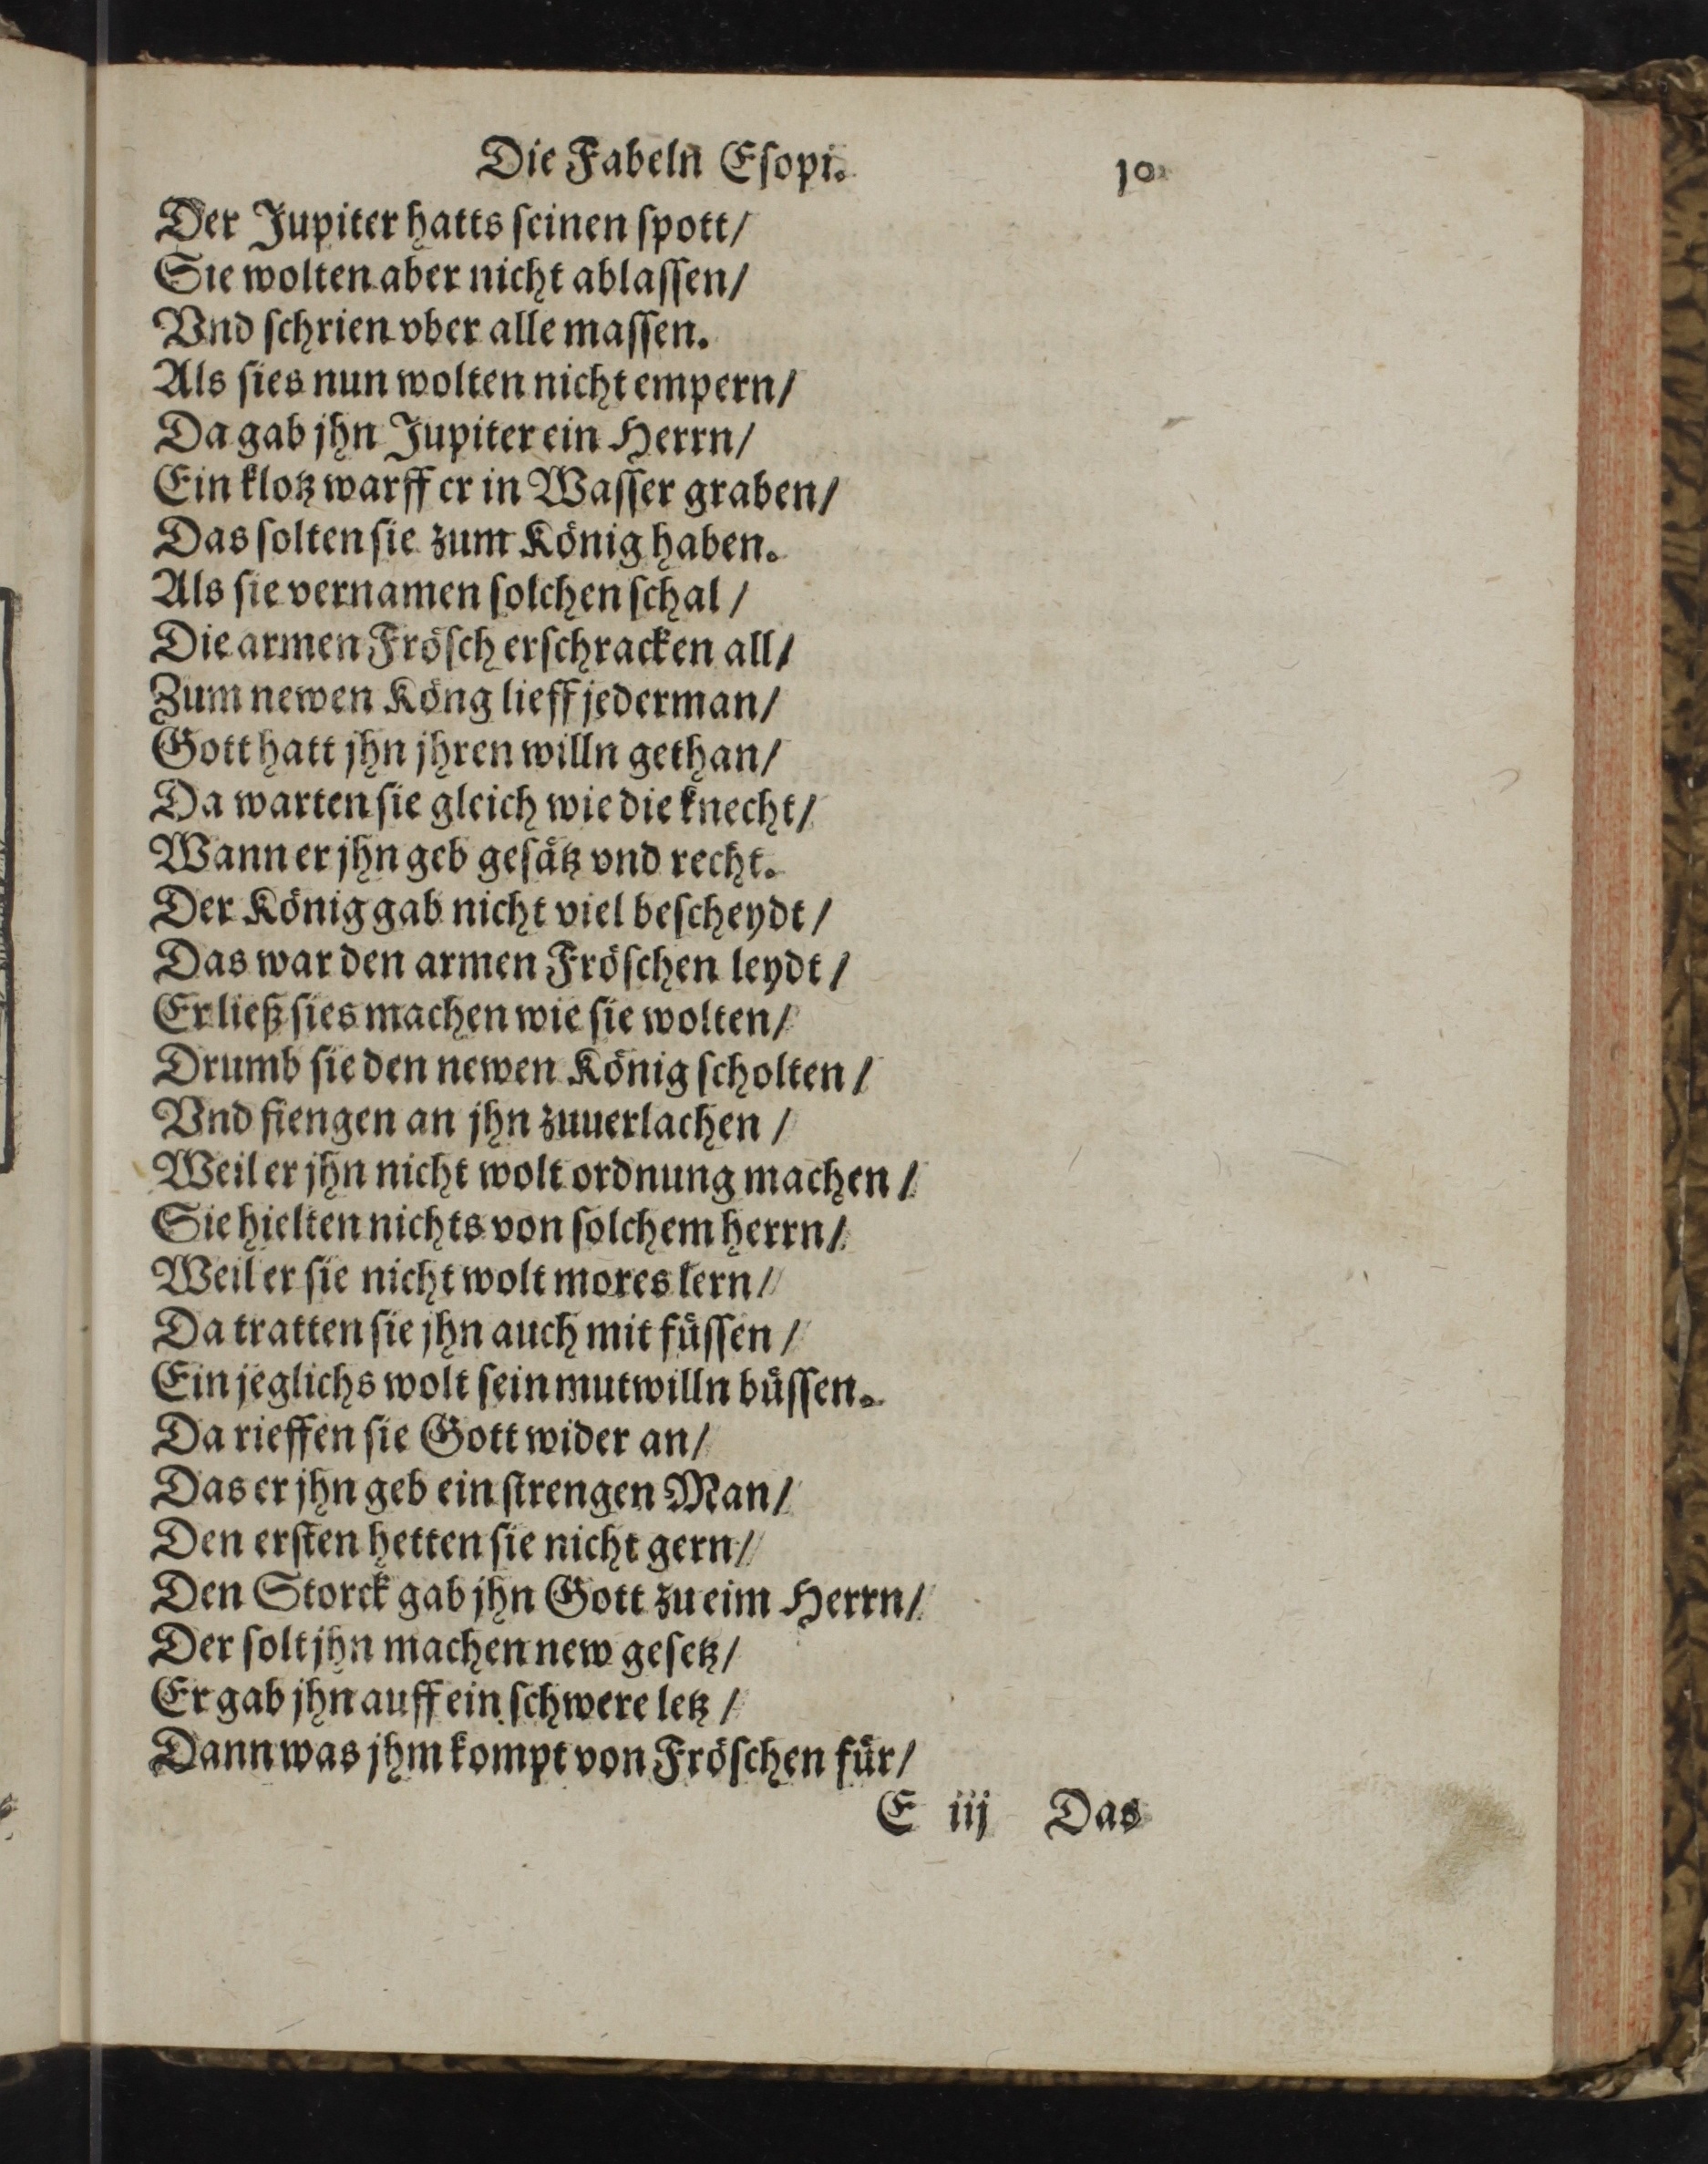 Die Fabeln Eſopi. 10
Der Jupiter hatts ſeinen ſpott/
Sie wolten aber nicht ablaſſen/
Vnd ſchrien vber alle maſſen.
Als ſies nun wolten nicht empern/
Da gab jhn Jupiter ein Herrn/
Ein klotz warff er in Waſſer graben/
Das ſolten ſie zum König haben.
Als ſie vernamen ſolchen ſchal /
Die armen Fröſch erſchracken all/
Zum newen Köng lieff jederman/
Gott hatt jhn jhren willn gethan/
Da warten ſie gleich wie die knecht/
Wann er jhn geb geſätz vnd recht.
Der König gab nicht viel beſcheydt /
Das war den armen Fröſchen leydt /
Er ließ ſies machen wie ſie wolten/
Drumb ſie den newen König ſcholten /
Vnd fiengen an jhn zuuerlachen /
Weil er jhn nicht wolt ordnung machen /
Sie hielten nichts von ſolchem herrn/
Weil er ſie nicht wolt mores lern/
Da tratten ſie jhn auch mit füſſen /
Ein jeglichs wolt ſein mutwilln büſſen.
Da rieffen ſie Gott wider an/
Das er jhn geb ein ſtrengen Man/
Den erſten hetten ſie nicht gern/
Den Storck gab jhn Gott zu eim Herrn/
Der ſolt jhn machen new geſetz/
Er gab jhn auff ein ſchwere letz /
Dann was jhm kompt von Fröſchen für/
E iij Das